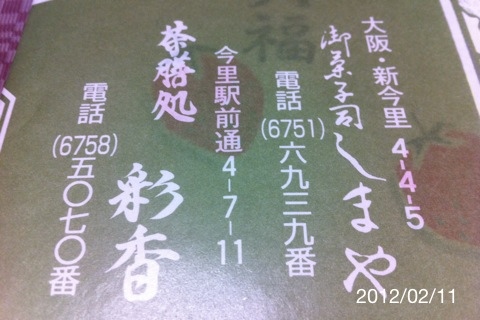 大阪・新今里 4-4-5
御菓子司 しまや
電話(6751)六九三九番
今里駅前通 4-7-11
茶膳処 彩香
電話(6758)五〇七〇番
福
2012/02/11